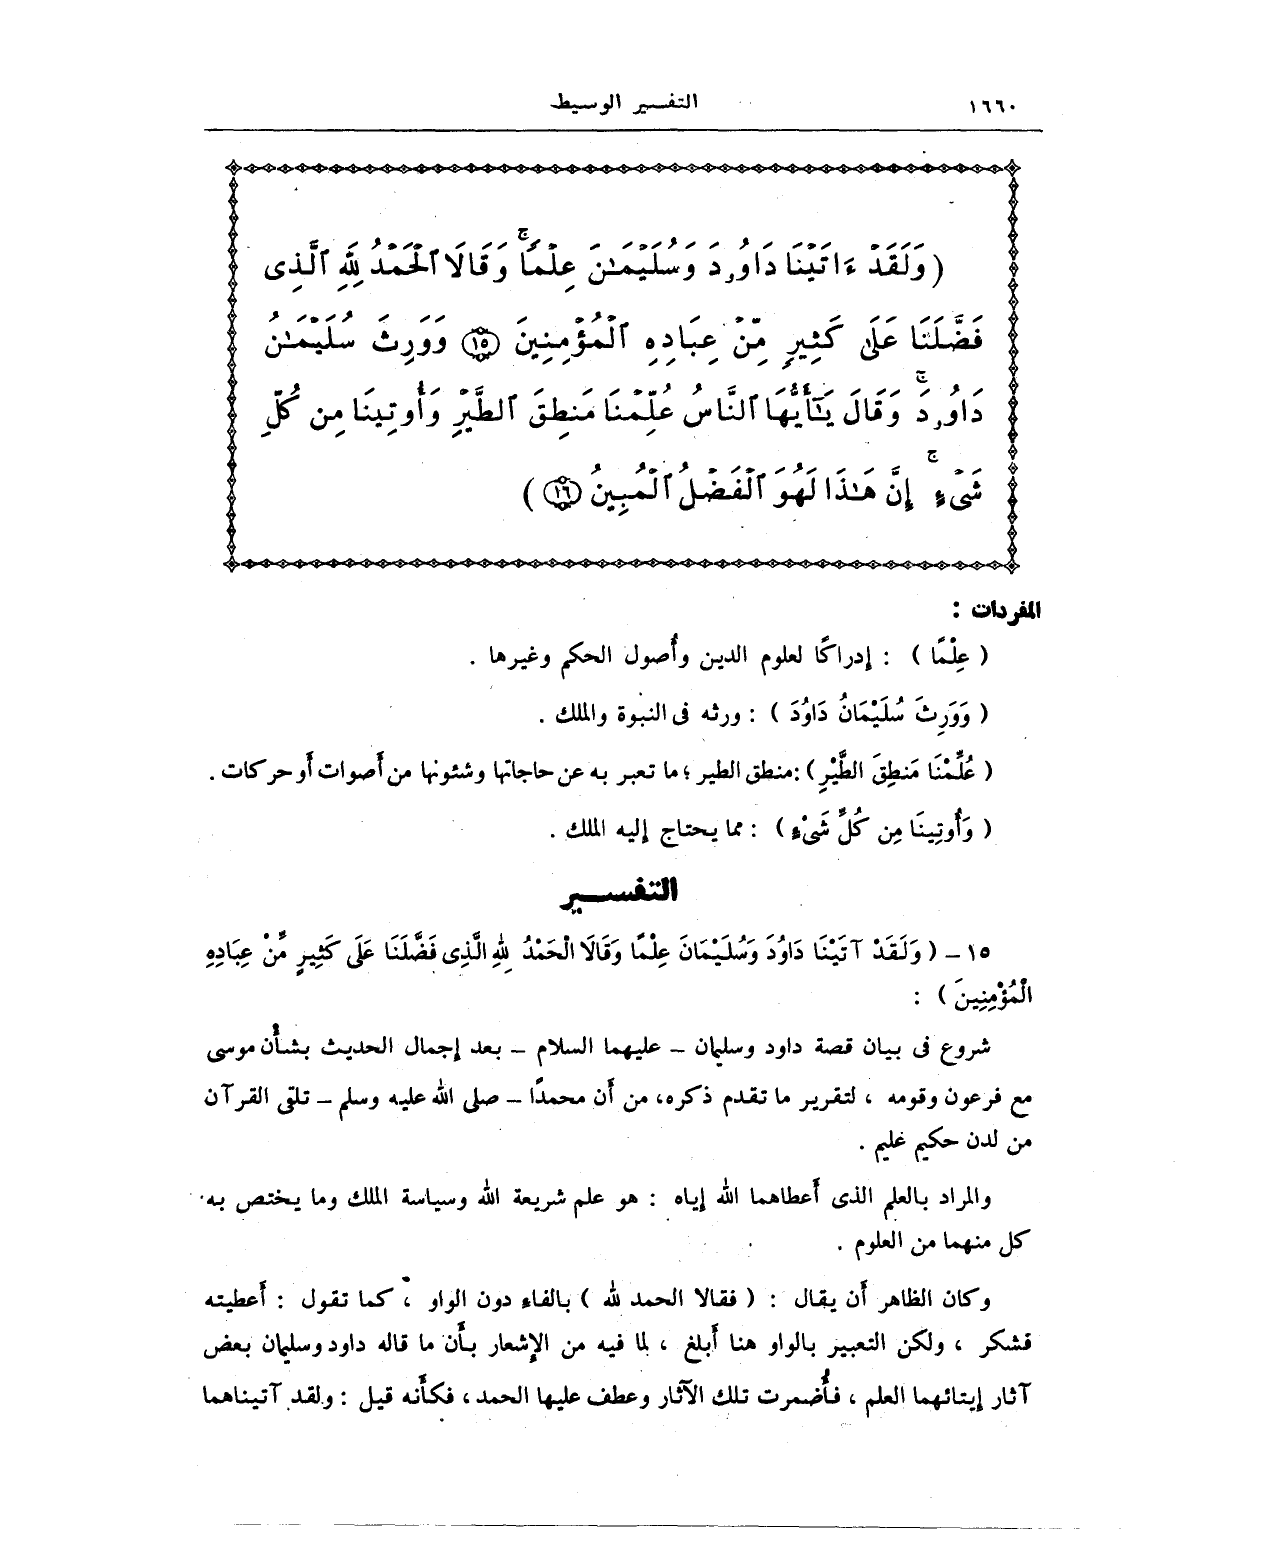 ١٦٦٠ التفسير الوسيط
(وَلَقَدْ ءَاتَيْنَا دَاوُۥدَ وَسُلَيْمَٰنَ عِلْمًاۖ وَقَالَا ٱلْحَمْدُ لِلَّهِ ٱلَّذِى
فَضَّلَنَا عَلَىٰ كَثِيرٍ مِّنْ عِبَادِهِ ٱلْمُؤْمِنِينَ ١٥ وَوَرِثَ سُلَيْمَٰنُ
دَاوُۥدَۚ وَقَالَ يَٰٓأَيُّهَا ٱلنَّاسُ عُلِّمْنَا مَنطِقَ ٱلطَّيْرِ وَأُوتِينَا مِن كُلِّ
شَىْءٍۚ إِنَّ هَٰذَا لَهُوَ ٱلْفَضْلُ ٱلْمُبِينُ ١٦)
المفردات :
( عِلْمًا ) : إدراكًا لعلوم الدين وأصول الحكم وغيرها .
( وَوَرِثَ سُلَيْمَانُ دَاوُدَ ) : ورثه فى النبوة والملك .
( عُلِّمْنَا مَنطِقَ الطَّيْرِ ) :منطق الطير ؛ ما تعبر به عن حاجاتها وشئونها من أصوات أو حركات .
( وَأُوتِينَا مِن كُلِّ شَىْءٍ ) : مما يحتاج إليه الملك .
التفســـير
١٥ – ( وَلَقَدْ آتَيْنَا دَاوُدَ وَسُلَيْمَانَ عِلْمًا وَقَالَا الْحَمْدُ لِلَّهِ الَّذِى فَضَّلَنَا عَلَى كَثِيرٍ مِّنْ عِبَادِهِ
الْمُؤْمِنِينَ ) :
شروع فى بيان قصة داود وسليمان – عليهما السلام – بعد إجمال الحديث بشأن موسى
مع فرعون وقومه ، لتقرير ما تقدم ذكره، من أن محمدًا – صلى الله عليه وسلم – تلقى القرآن
من لدن حكيم عليم .
والمراد بالعلم الذى أعطاهما الله إياه : هو علم شريعة الله وسياسة الملك وما يختص به
كل منهما من العلوم .
وكان الظاهر أن يقال : ( فقالا الحمد لله ) بالفاء دون الواو ، كما تقول : أعطيته
فشكر ، ولكن التعبير بالواو هنا أبلغ ، لما فيه من الإشعار بأن ما قاله داود وسليمان بعض
آثار إيتائهما العلم ، فأُضمرت تلك الآثار وعطف عليها الحمد، فكأنه قيل : ولقد آتيناهما